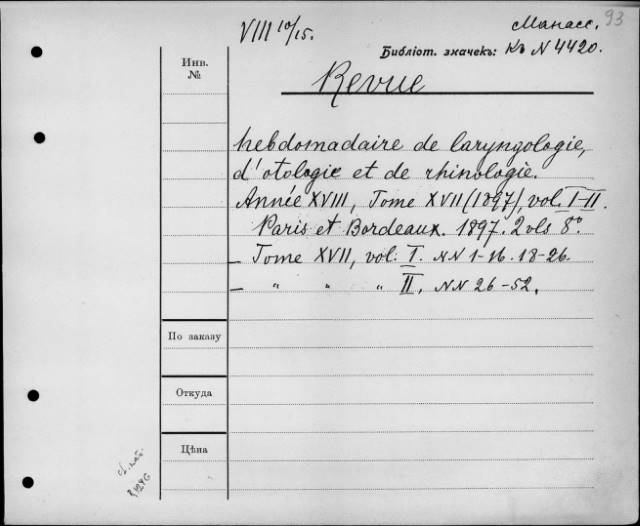 VIII 10/15.
Манасс. 93
Библіот. значекъ: Къ N 4420.
Инв.
№
Revue
hebdomadaire de laryngologie,
d'otologie et de rhinologie.
Année XVIII, Tome XVII (1897), vol. I-II.
Paris et Bordeaux. 1897. 2 vls 8º.
– Tome XVII, vol. I. NN 1-16. 18-26.
– " " " II, NN 26-52.
По заказу
Откуда
Цѣна